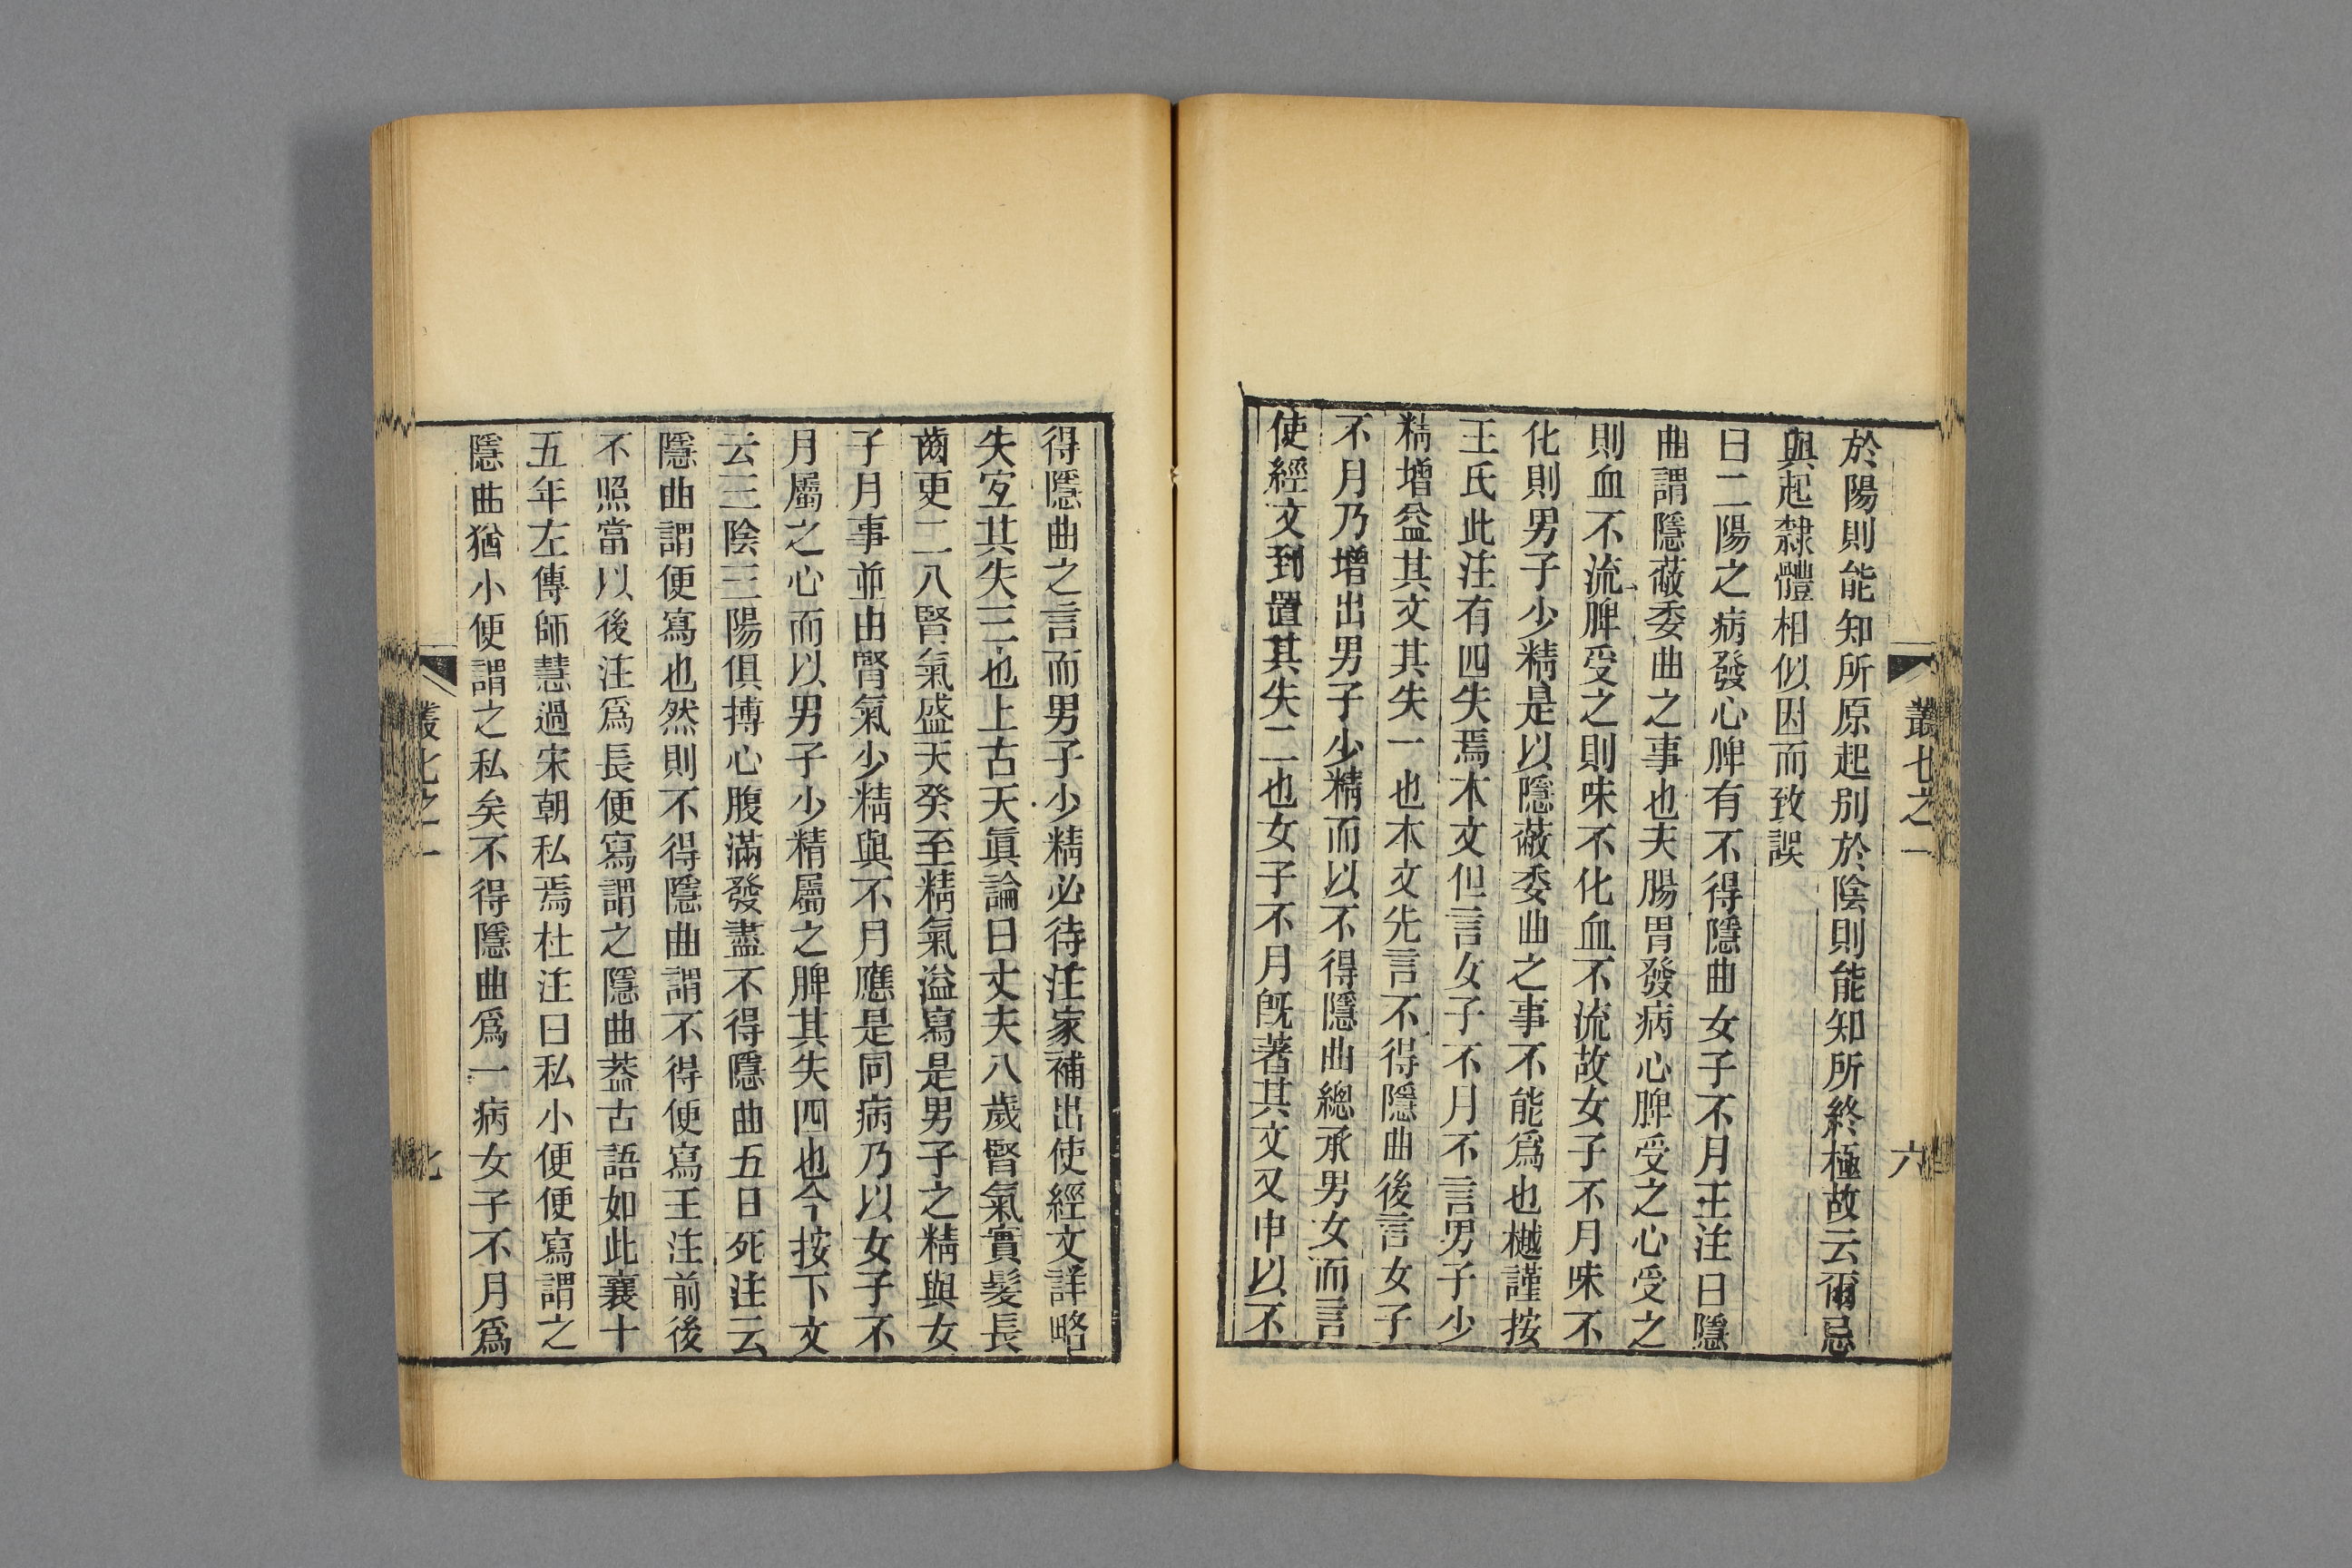 叢七之一 六
於陽則能知所原起别於陰則能知所終極故云爾忌
與起隸體相似因而致誤
曰二陽之病發心脾有不得隱曲女子不月王注曰隱
曲謂隱蔽委曲之事也夫腸胃發病心脾受之心受之
則血不流脾受之則味不化血不流故女子不月味不
化則男子少精是以隱蔽委曲之事不能爲也樾謹按
王氏此注有四失焉本文但言女子不月不言男子少
精增益其文其失一也本文先言不得隱曲後言女子
不月乃增出男子少精而以不得隱曲總承男女而言
使經文到置其失二也女子不月旣著其文又申以不
得隱曲之言而男子少精必待注家補出使經文詳略
失宐其失三也上古天眞論曰丈夫八歲腎氣實髮長
齒更二八腎氣盛天癸至精氣溢寫是男子之精與女
子月事並由腎氣少精與不月應是同病乃以女子不
月屬之心而以男子少精屬之脾其失四也今按下文
云三陰三陽俱搏心腹滿發盡不得隱曲五日死注云
隱曲謂便寫也然則不得隱曲謂不得便寫王注前後
不照當以後注爲長便寫謂之隱曲葢古語如此襄十
五年左傳師慧過宋朝私焉杜注曰私小便便寫謂之
隱曲猶小便謂之私矣不得隱曲爲一病女子不月爲
叢七之一 七